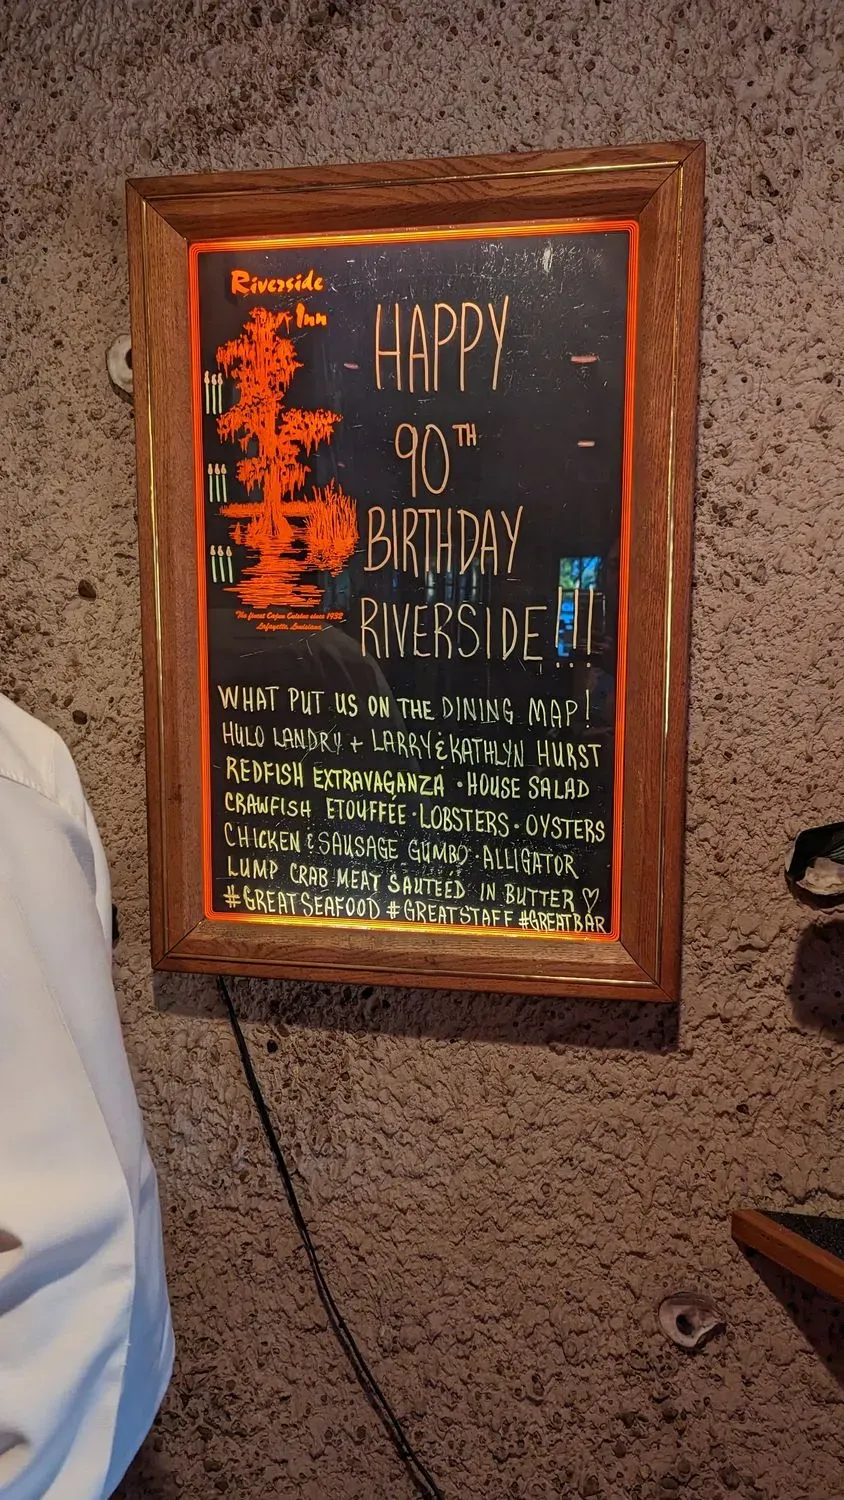 Riverside
Inn
The finest Cajun Cuisine since 1932
Lafayette, Louisiana
HAPPY
90TH
BIRTHDAY
RIVERSIDE!!!
WHAT PUT US ON THE DINING MAP!
HULO LANDRY + LARRY & KATHLYN HURST
REDFISH EXTRAVAGANZA · HOUSE SALAD
CRAWFISH ETOUFFÉE · LOBSTERS · OYSTERS
CHICKEN & SAUSAGE GUMBO · ALLIGATOR
LUMP CRAB MEAT SAUTÉED IN BUTTER ♡
#GREATSEAFOOD #GREATSTAFF #GREATBAR